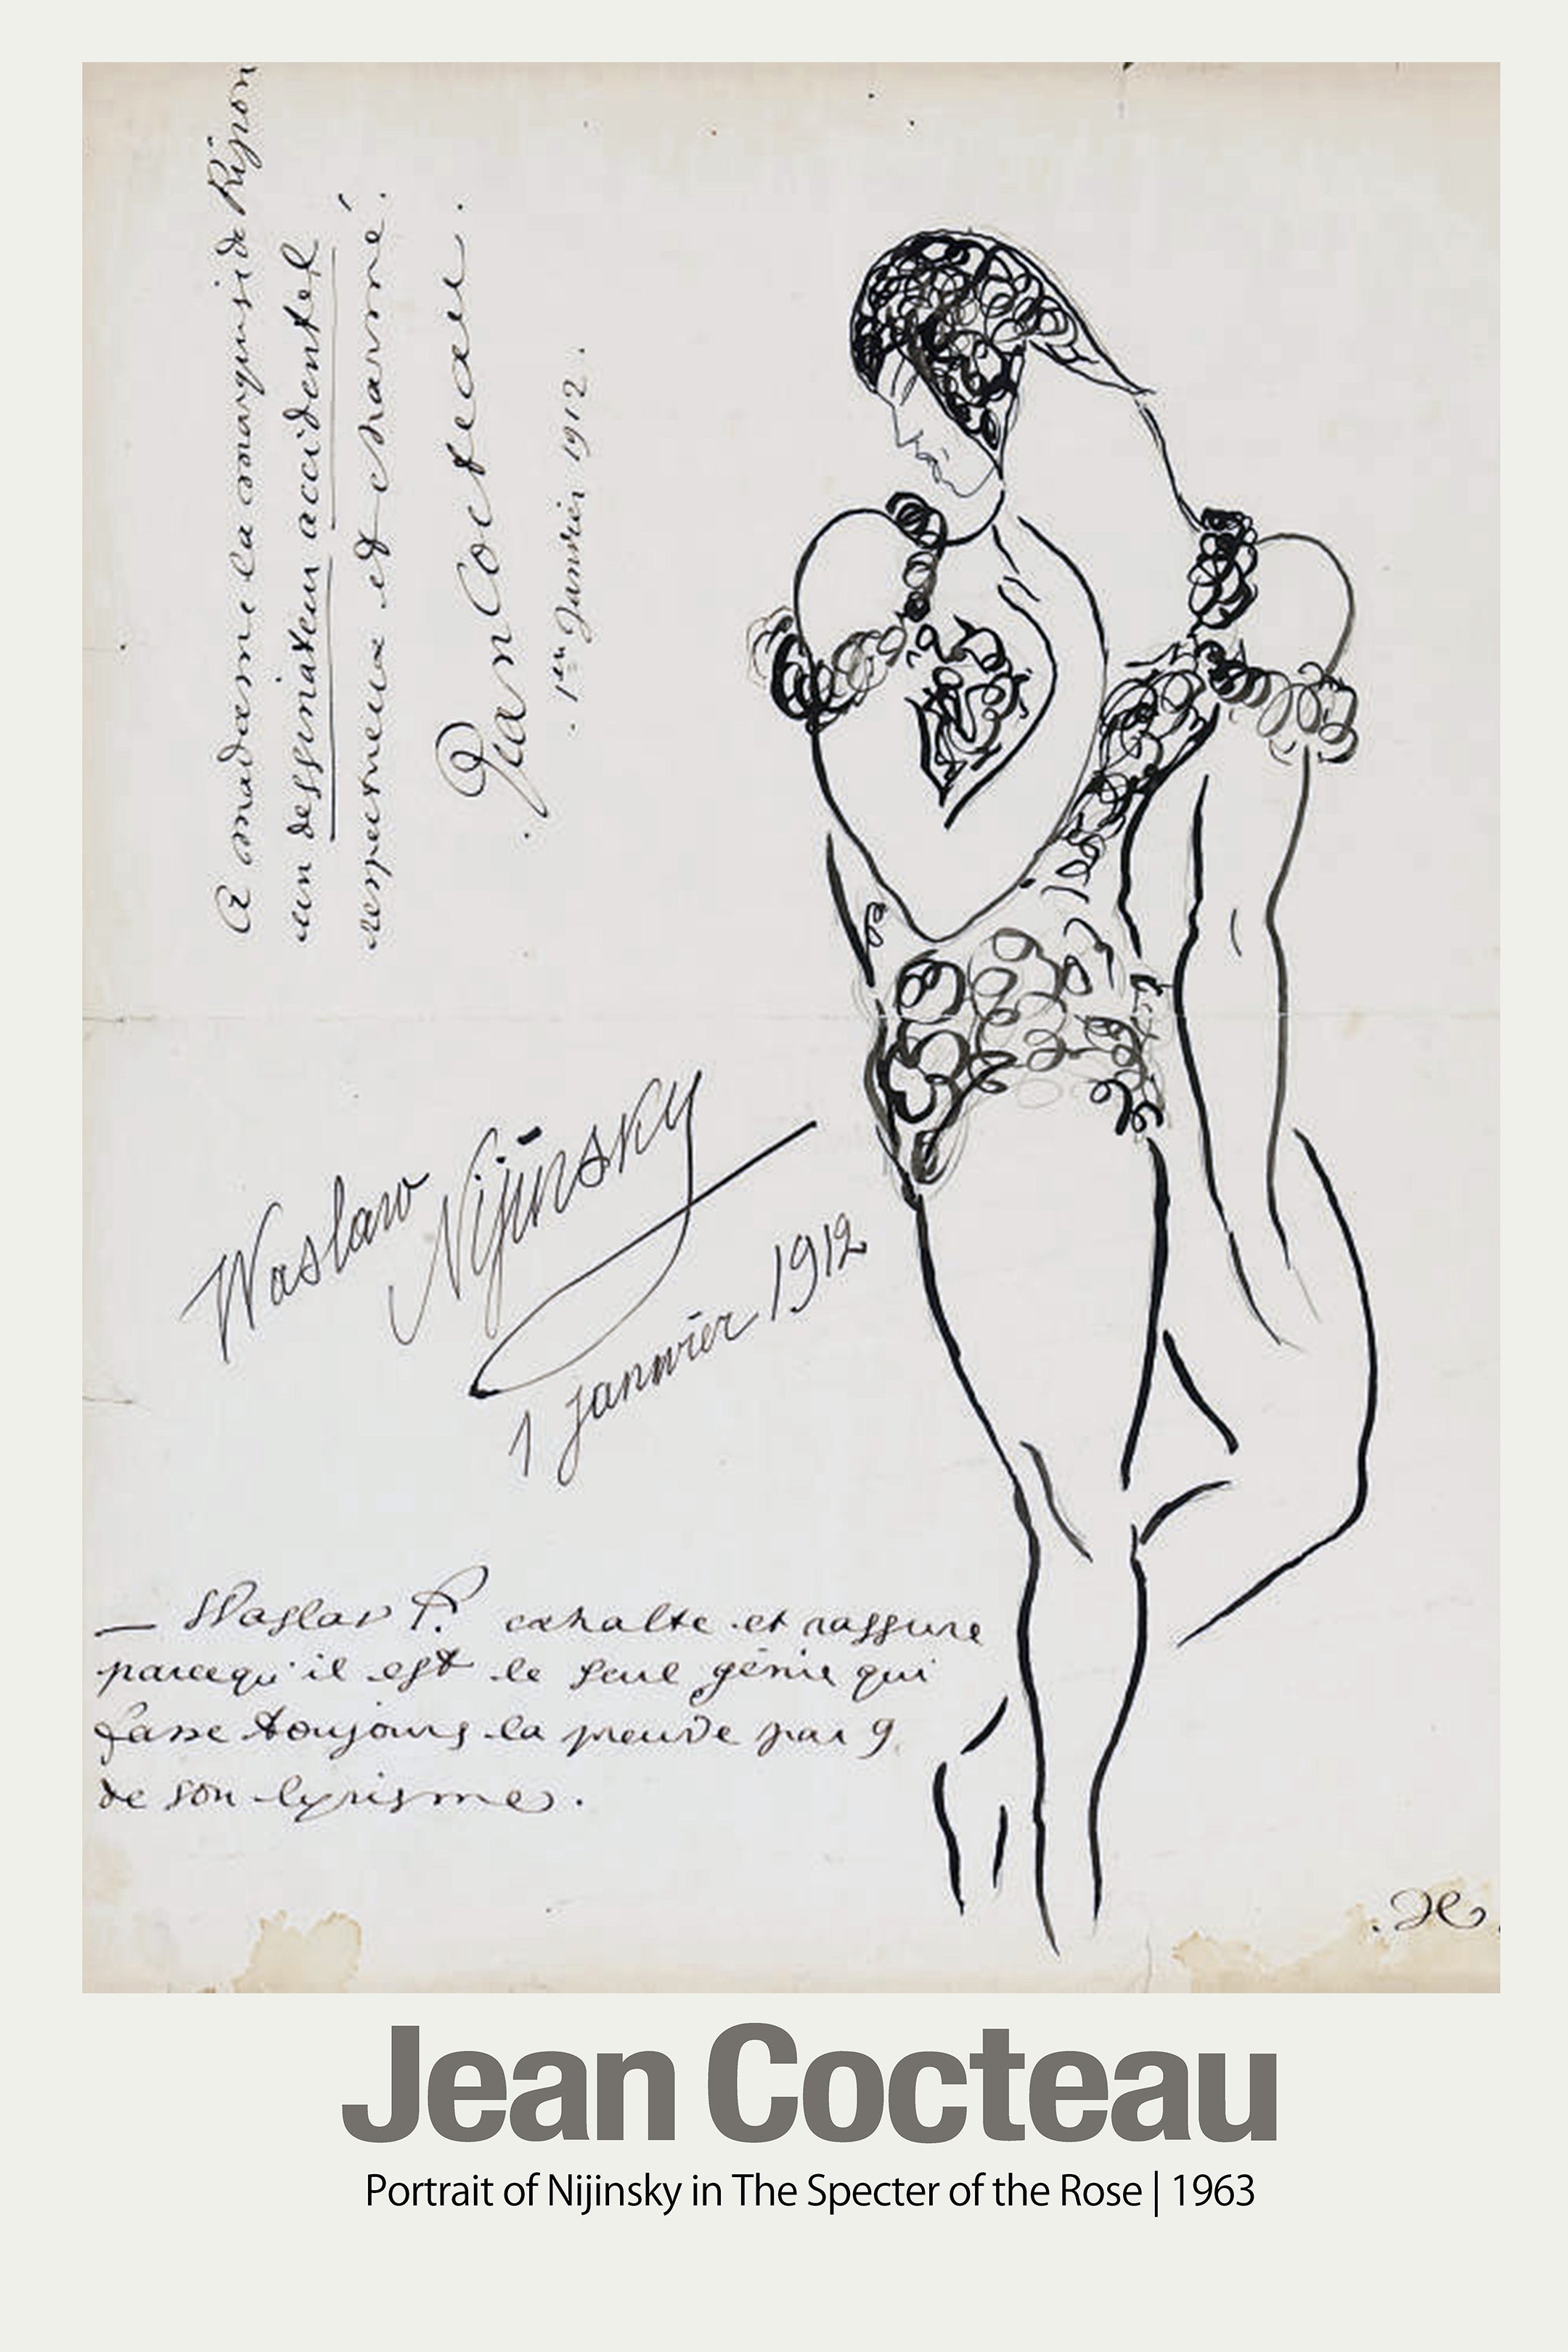 A madame la marquise de Ripon
un dessinateur accidentel
respectueux et charmé.
Jean Cocteau.
. 1er Janvier 1912.
Waslaw Nijinsky
1 janvier 1912
— Waslav F. exhalte et rassure
parcequ'il est le seul génie qui
fasse toujours la preuve par 9
de son lyrisme.
Jean Cocteau
Portrait of Nijinsky in The Specter of the Rose | 1963